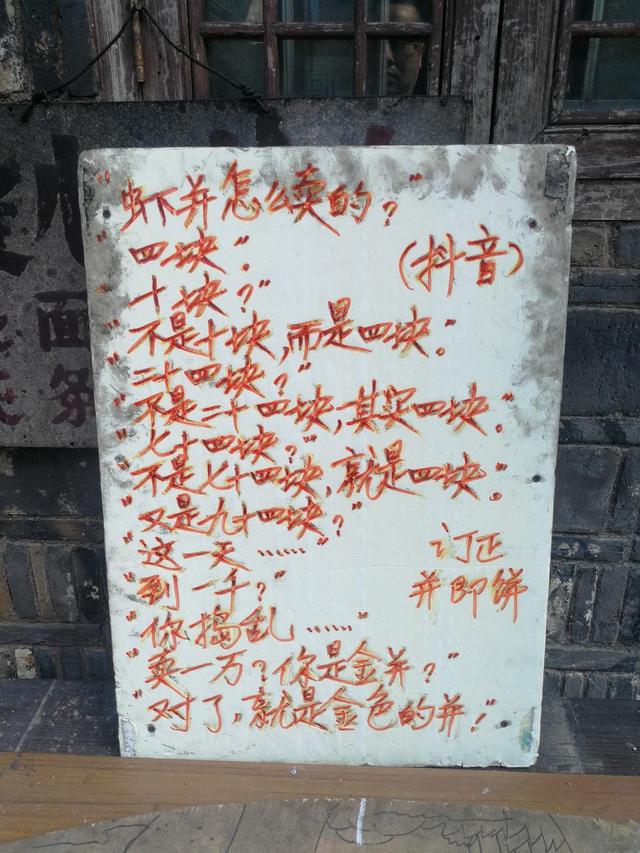 “虾并怎么卖的？”
“四块”。
（抖音）
“十块？”
“不是十块，而是四块。”
“二十四块？”
“不是二十四块，其实四块。”
“七十四块？”
“不是七十四块，就是四块。”
“又是九十四块”？
“这一天……
“到一千？”
“你捣乱……”
“卖一万？你是金并？”
“对了，就是金色的并！”
订正
并即饼
面条